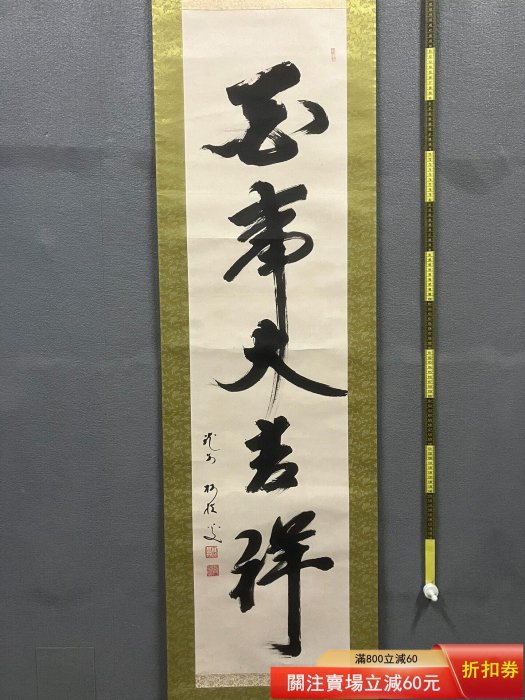 百事大吉祥
滿800立減60
關注賣場立減60元
折扣券